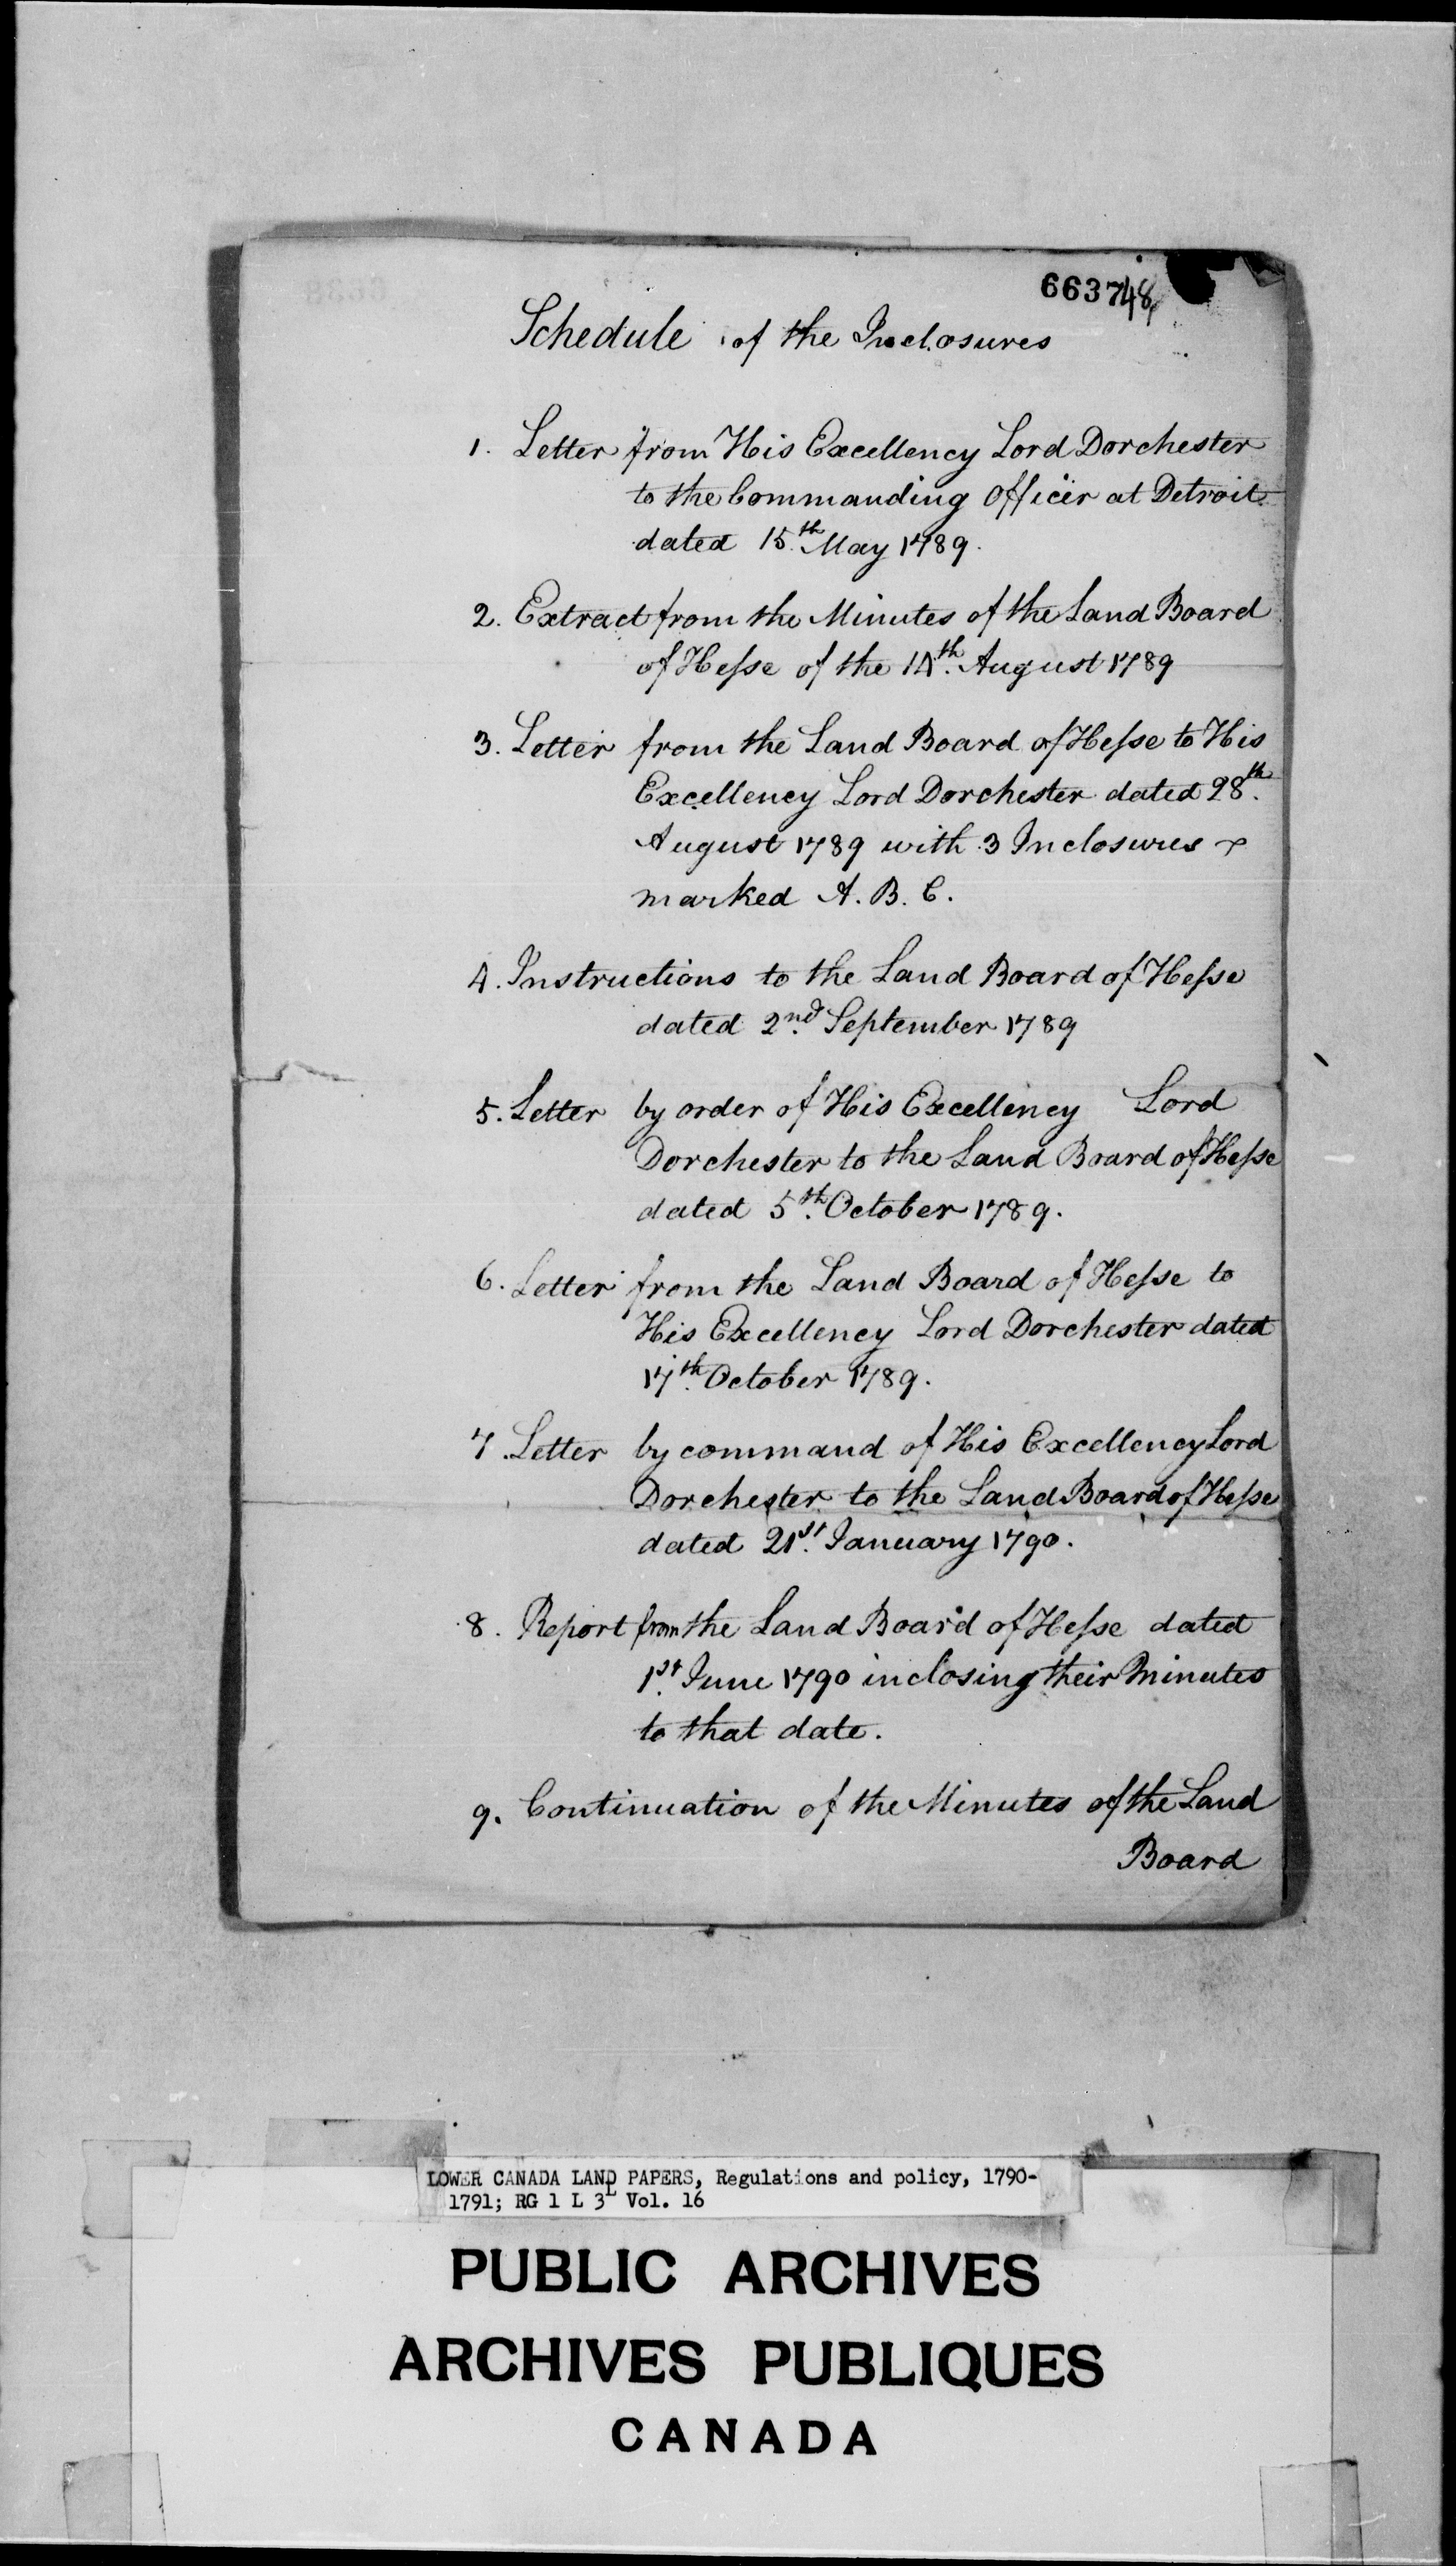 663748
Schedule of the Inclosures
1. Letter from His Excellency Lord Dorchester
to the Commanding Officer at Detroit
dated 15th. May 1789.
2. Extract from the Minutes of the Land Board
of Heſse of the 14th. August 1789
3. Letter from the Land Board of Heſse to His
Excellency Lord Dorchester dated 28th.
August 1789 with 3 Inclosures
marked A. B. C.
4. Instructions to the Land Board of Heſse
dated 2nd. September 1789
5. Letter by order of His Excellency Lord
Dorchester to the Land Board of Heſse
dated 5th. October 1789.
6. Letter from the Land Board of Heſse to
His Excellency Lord Dorchester dated
17th. October 1789.
7. Letter by command of His Excellency Lord
Dorchester to the Land Board of Heſse
dated 21st. January 1790.
8. Report from the Land Board of Heſse dated
1st. June 1790 inclosing their Minutes
to that date.
9. Continuation of the Minutes of the Land
Board
LOWER CANADA LAND PAPERS, Regulations and policy, 1790-
1791; RG 1 L 3L Vol. 16
PUBLIC ARCHIVES
ARCHIVES PUBLIQUES
CANADA